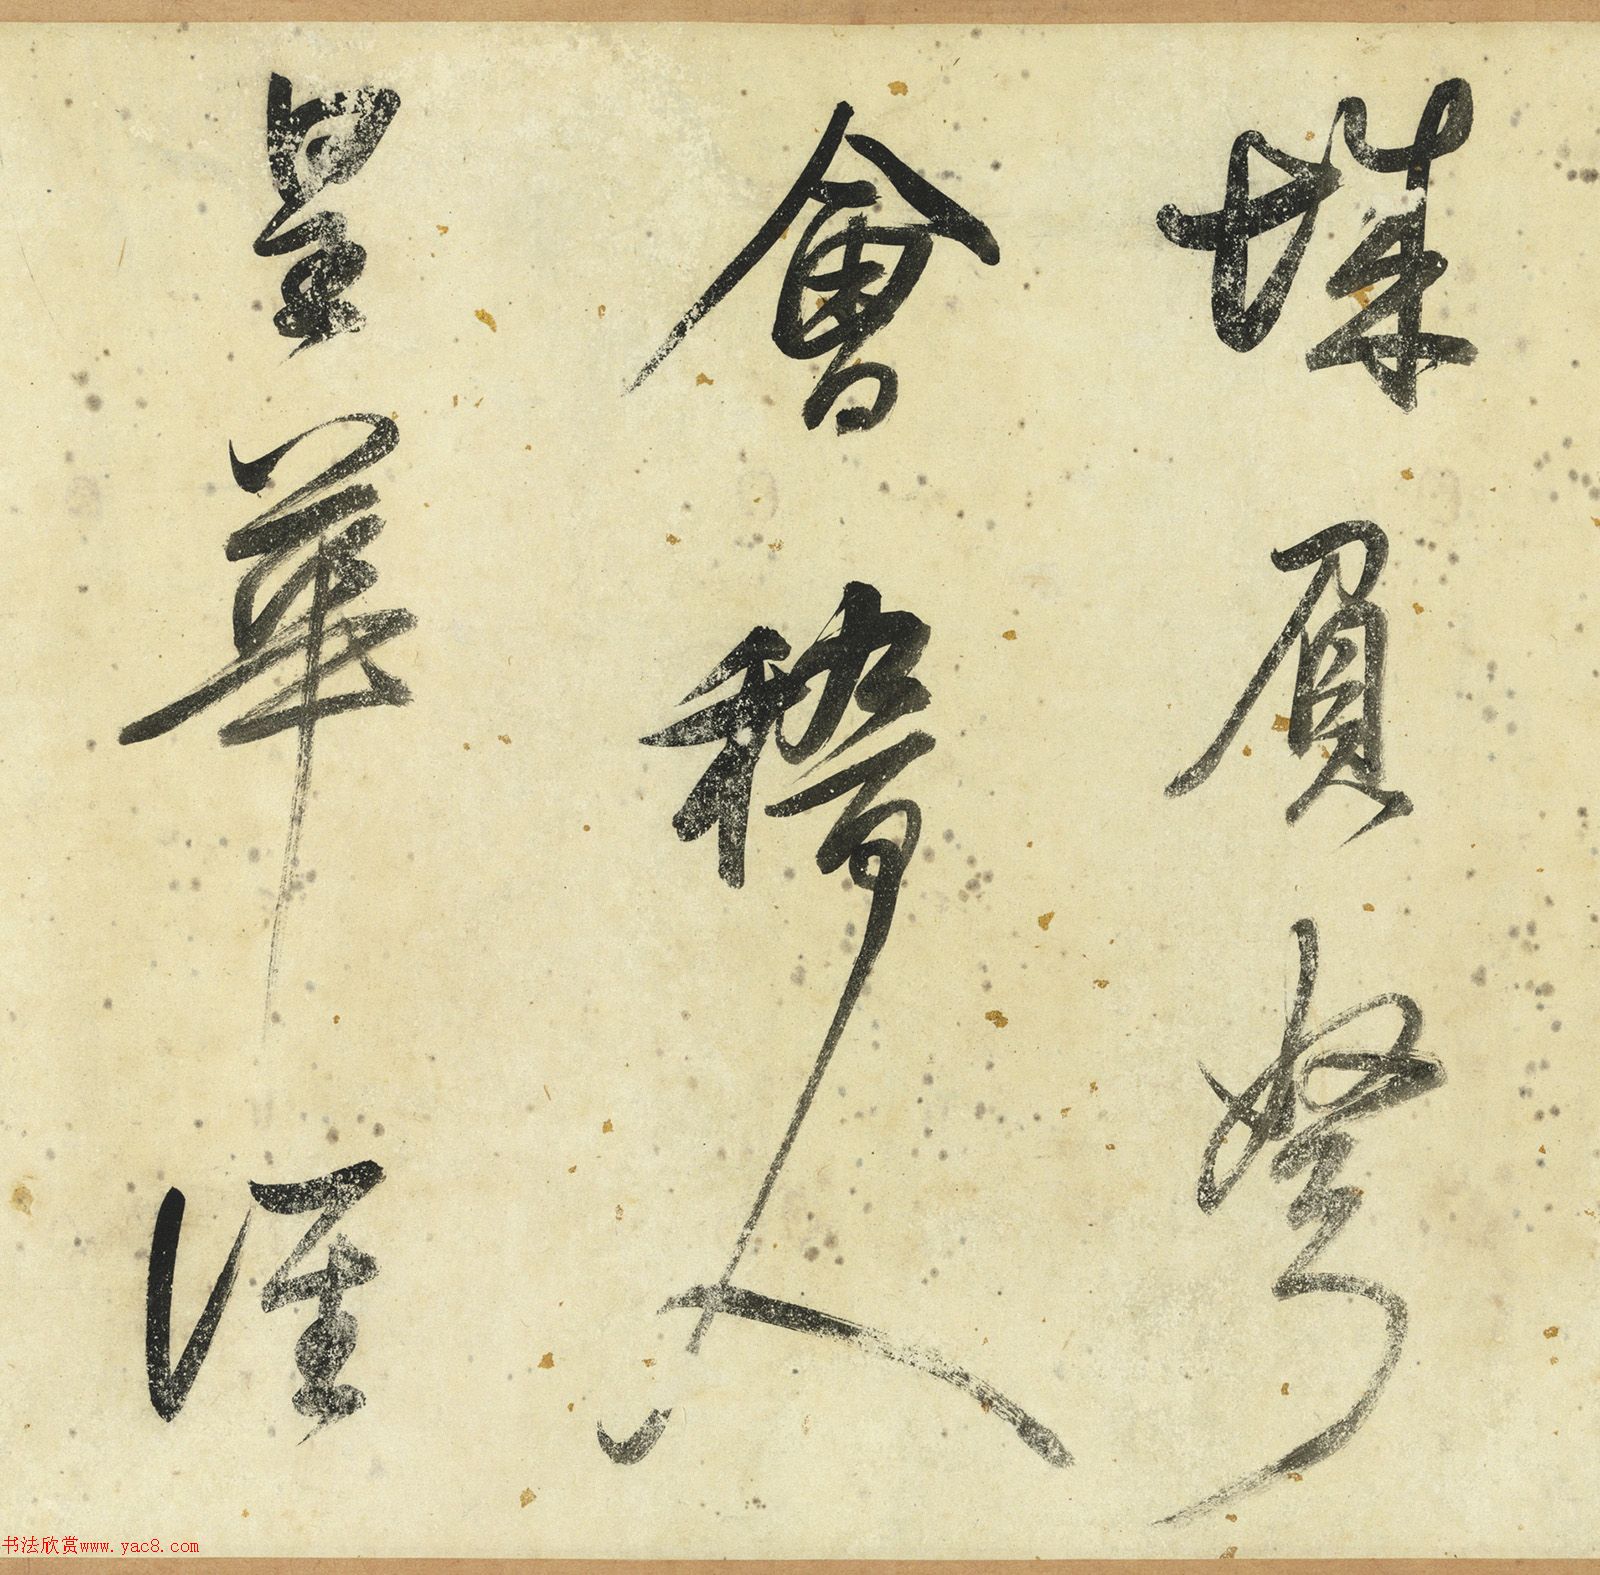 負弩
會稽人
皇華
书法欣赏www.yac8.com